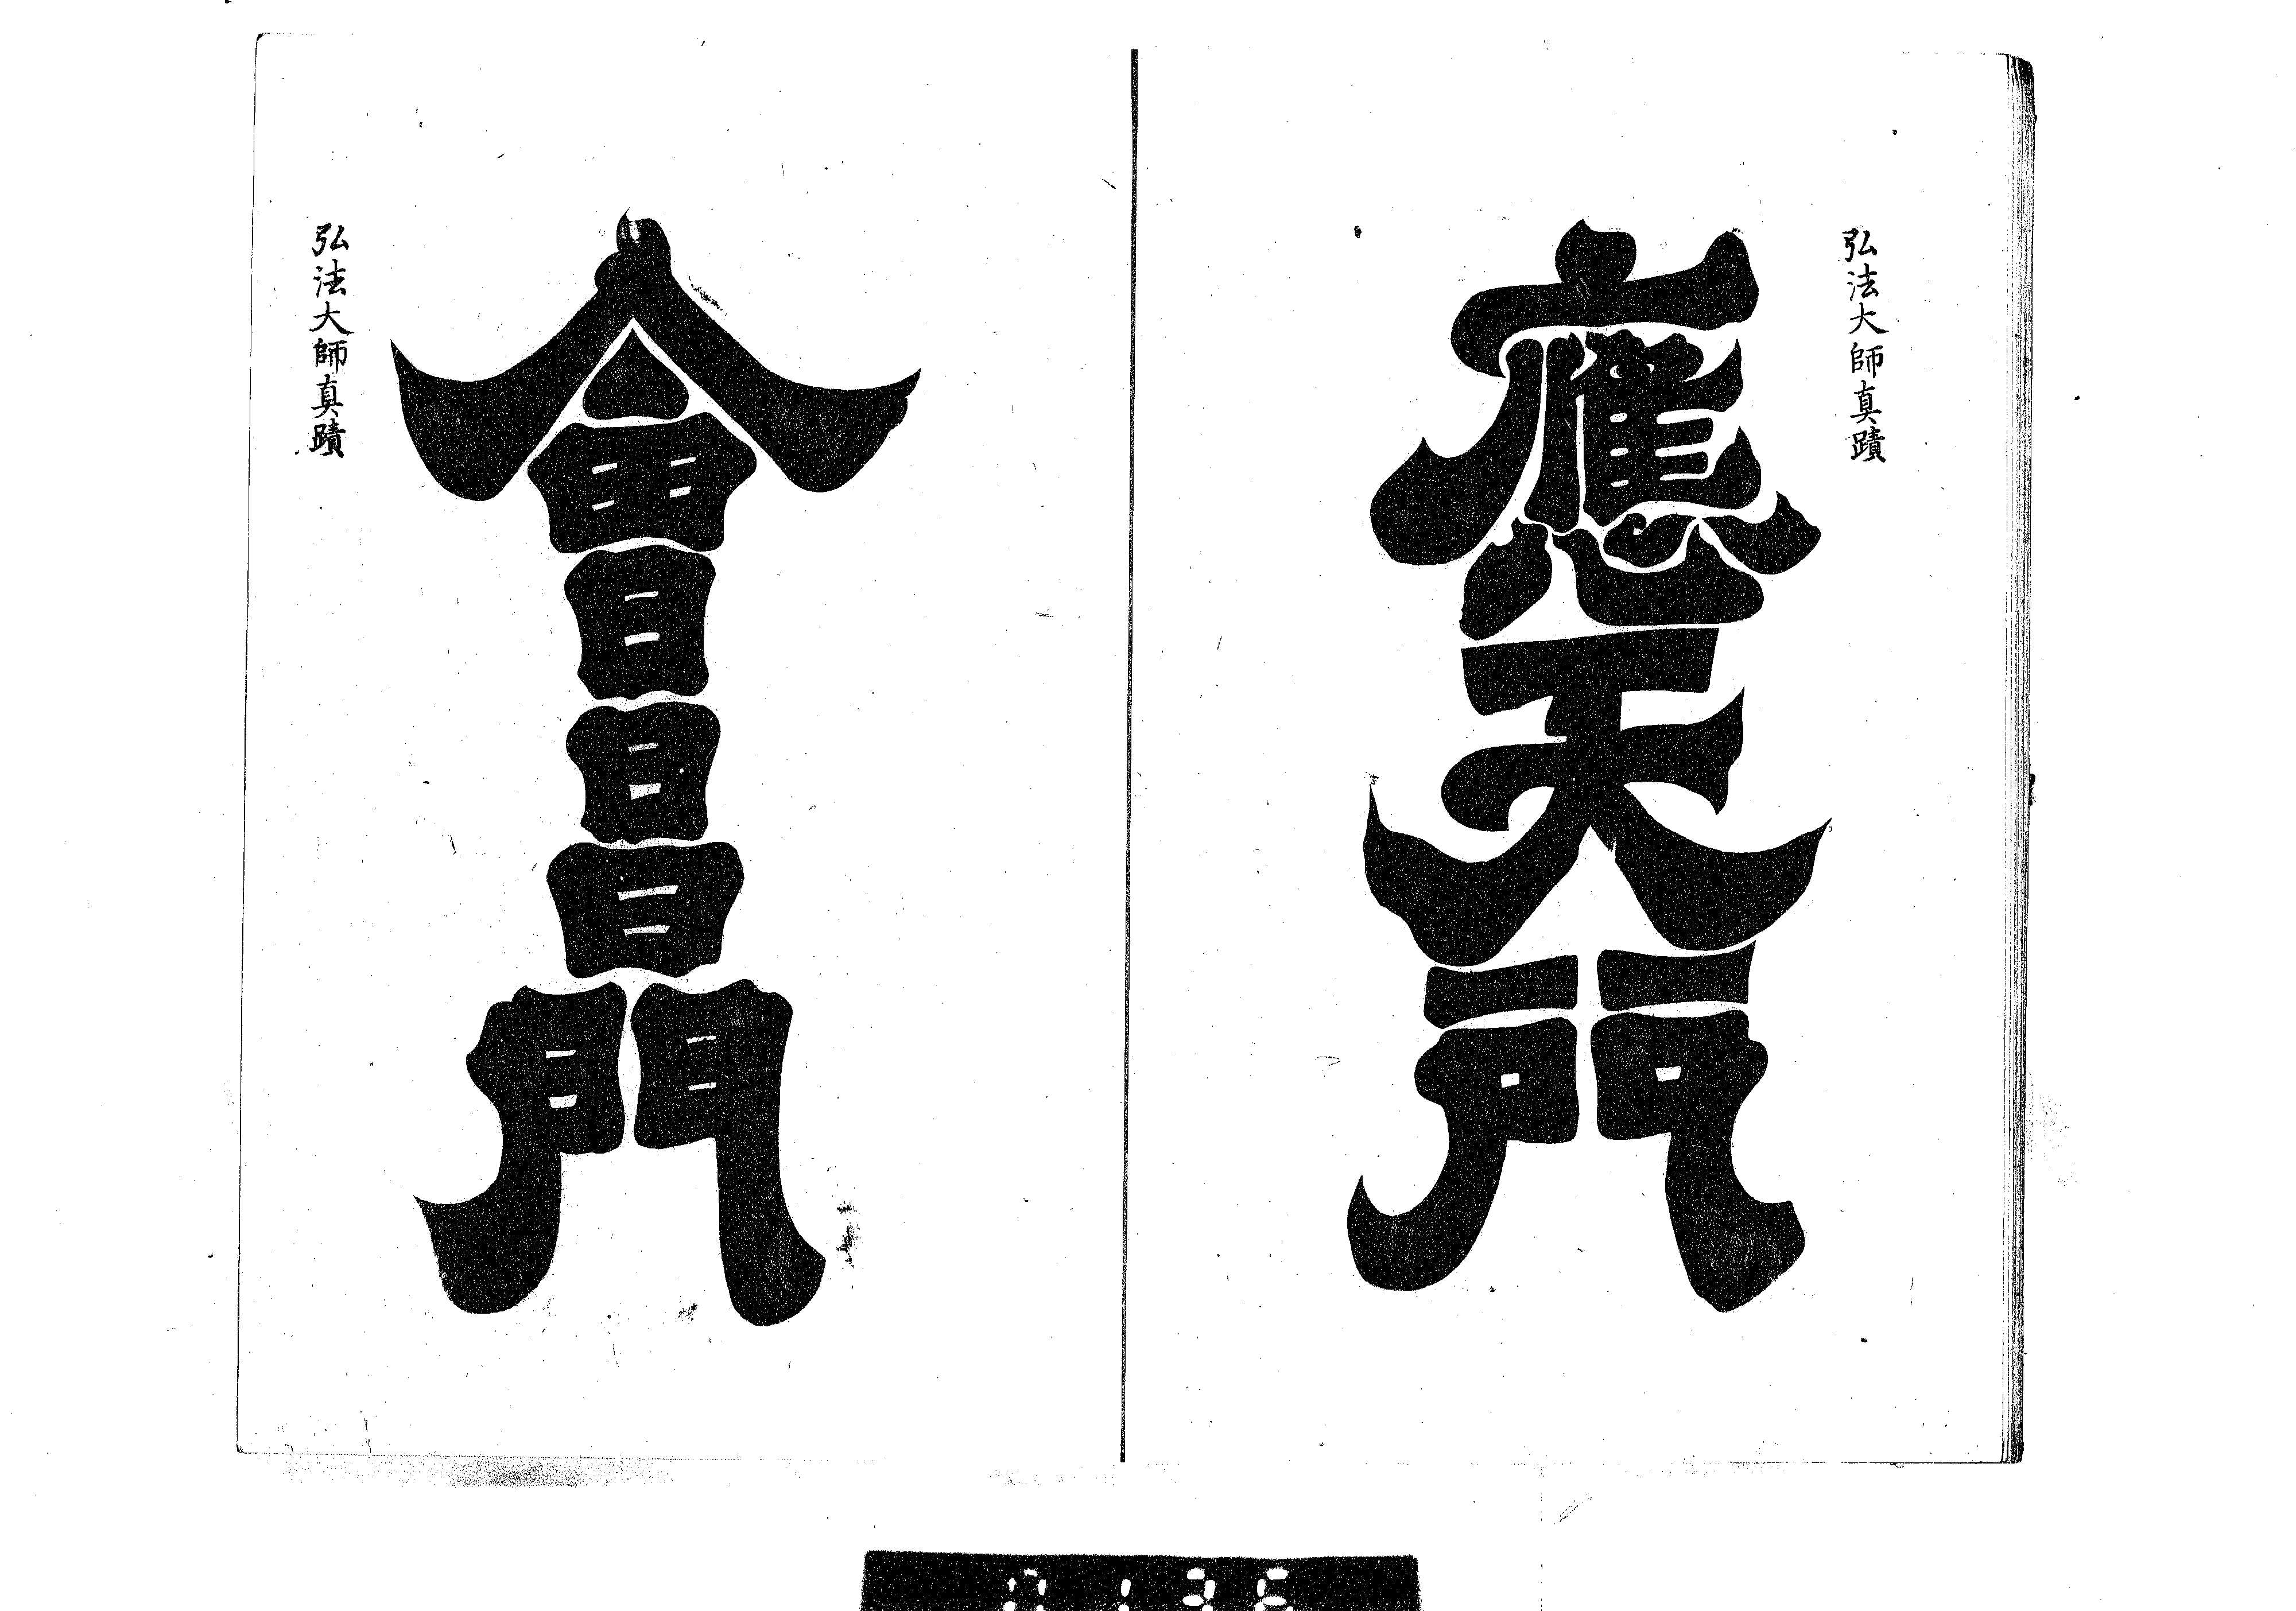 弘法大師真蹟
應天門
會昌門
弘法大師真蹟